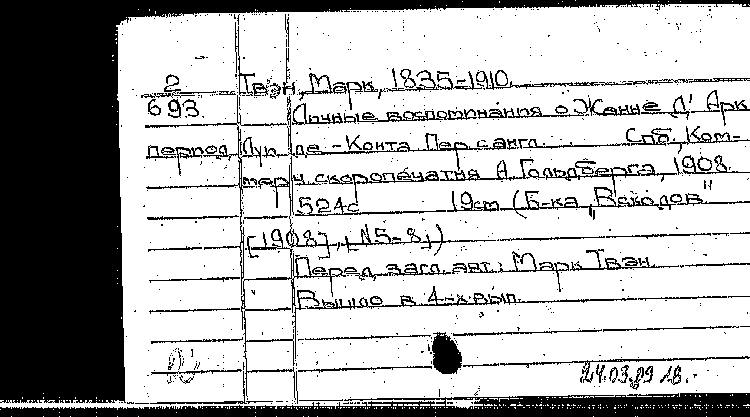 2 Твэн, Марк, 1835-1910.
693. Личные воспоминания о Жанне Д' Арк
период. Луи де-Конта Пер. с англ. ... Спб., Ком-
мерч. скоропечатня А. Гольдберга, 1908.
524с 19см (Б-ка „Всходов"
[1908], [N5-8])
Перед загл. авт.: Марк Твэн.
Вышло в 4-х вып.
24.03.89 18.